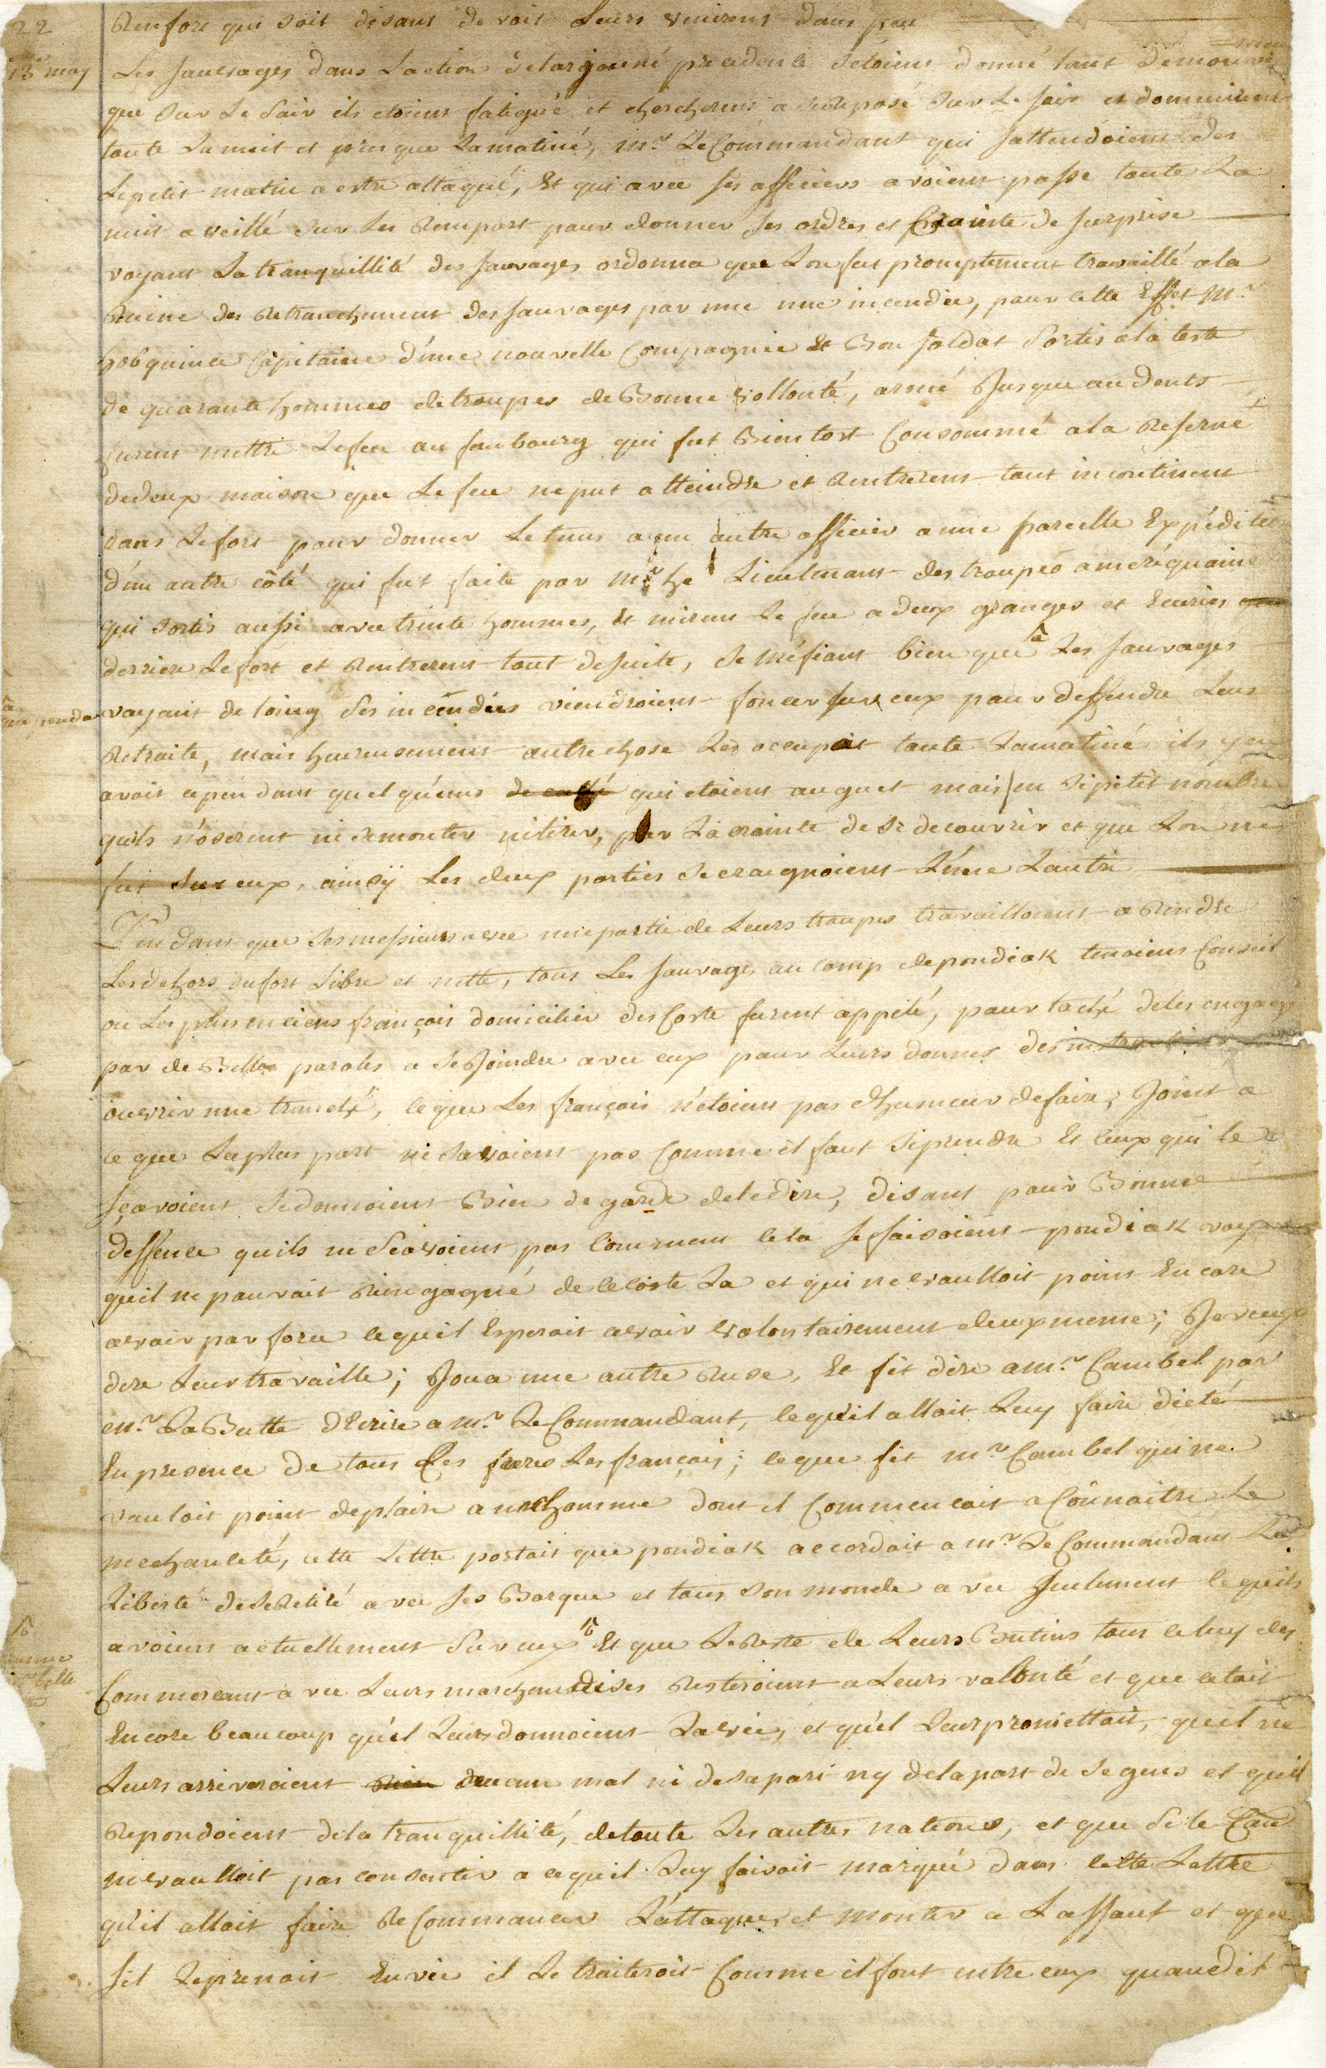 22
Renfort qui soit disant devoit Leurs venirent dans peu
13 may
Les sauvages dans Laction delarjourné precedente setoient donné tant demouvem
que sur Le Soir ils etoient fatigué et chercherent a se reposé sur Le soir et dormirent
toute La nuit et presque Lamatiné, mr Le Commandant qui sattendoient des
Lepetit matin a estre attaqué, Et qui avec ses officiers avoient passe toute La
nuit a veillé sur Les Rempart pour donner ses ordres et Crainte de surprise
voyant La tranquillité des sauvages ordonna que Lon fut promptement travaillé ala
Ruine des Retranchement des sauvages par une une incendie, pour cette Effet Mr
hobquince Capitaine d'une nouvelle Compagnie Et Bon soldat Sortis ala teste
de quarante hommes detroupes de Bonne vollonté, armé Jusque au dents
furent mettre Lefeu au faubourg qui fut Bientost Consommé ala Reserve
dedeux maison que Le feu neput atteindre et Rentrerent tout incontinent
dans Lefort pour donner Le tems a un autre officier a une pareille Expédition
d'un autre côté qui fut faite par Mr he Lieutenant des troupes ameriquaine
qui sortis aussi avec trente hommes, Et mirent Le feu a deux granges et Ecuries
derriere Lefort et Rentrerent tout desuite, se méfiant bien que Les sauvages
voyant de loing Ses incendies viendroient foncer sur eux pour deffendre Leur
Retraite, mais heureusement autre chose Les occupoit toute Lamatiné ils yen
avoit cependant quelqu'uns qui etoient auguet mais en sipetit nombre
quils n'oserent ni semonter nitirer, par La crainte de se decouvrir et que Lon ne
fut sur eux, ainsÿ Les deux parties se craignoient L'une Lautre
Pendant que Ses messieurs avec une partie de Leurs troupes travailloient a Rendre
Lesdehors dufort Libre et nette, tous Les sauvages au camp de pondiak tenoient Conseil
ou Les plus enciens françois domicilier des Coste furent appélé, pour taché deles engagé
par de Belles paroles a se Joindre avec eux pour Leurs donnes des
ouvrir une tranché, ceque Les françois n'etoient pas d'humeur defaire, Joint a
ce que Laplus part ne savoient pas Comme il faut Siprendre Et ceux qui le
sçavoient Se donnoient Bien degarde deledire, disant pour Bonne
deffence quils ne Scavoient pas Comment cela se faisoient pondiak voyant
quil ne pouvoit Rien gagné de ce Coste La et qui ne vaulloit point Encore
avoir par force ce quil Esperoit avoir volontairement deuxmeme; Je veux
dire Leur travaille; Joua une autre Ruse, Et fit dire a mr Cambel par
mr La Butte d'Ecrire a mr Le Commandant, ce qu'il alloit Luy faire dicté
En presence de tous Ces freres Les françois; ceque fit mr Cambel qui ne
vouloit point deplaire a un homme dont il Commencait a Connaitre La
mechanceté, cette Lettre portoit que pondiak accordoit a mr Le Commandant La
Liberté de se Retiré avec ses Barque et tous son monde avec seulement ce quils
avoient actuellement Sur eux Et que Le Reste de Leurs Butins tous celuy des
Commercant avec Leurs marchandises Resteroient a Leurs volonté et que cetoit
Encore beaucoup qu'il Leurs donnoient Lavie, et qu'il Leur promettoit, quil ne
Leurs arriveroient aucun mal ni de sa part ny dela part de Se gens et quil
Repondoient dela tranquillité, detoute Les autres nations, et que Sile Com
ne voulloit pas consentir a cequil Luy faisoit marqué dans cette Lettre
qu'il alloit faire Recommancer L'attaque et monter a Lassaut et que
sil Leprenoit En vie il Le traiteroit Comme il font entre eux quand il